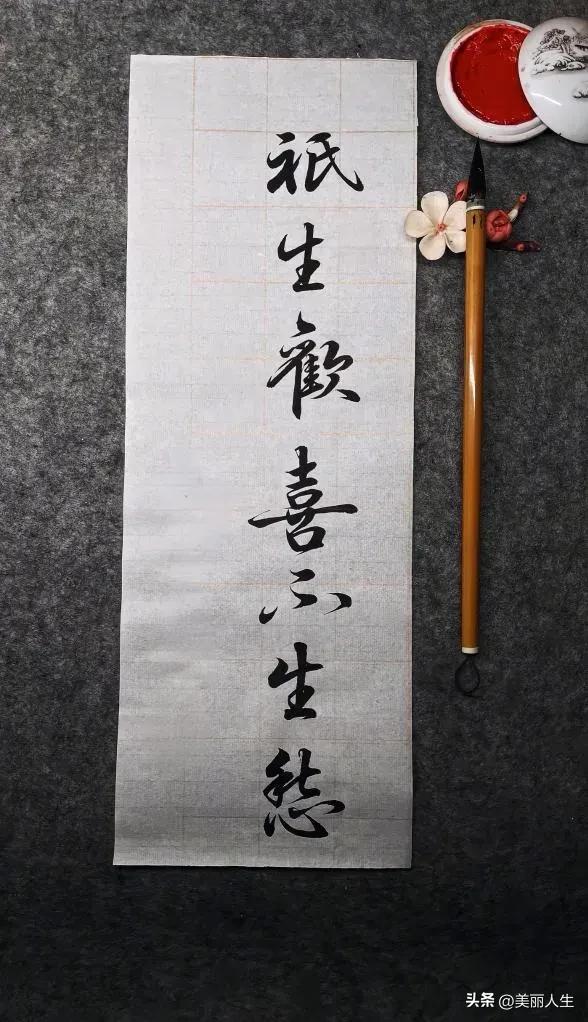 祇生歡喜不生愁
头条 @美丽人生